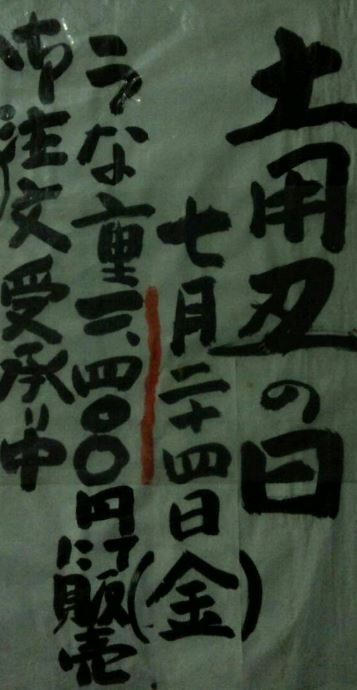 土用丑の日
七月二十四日(金)
うな重三、四〇〇円にて販売
御注文受承り中